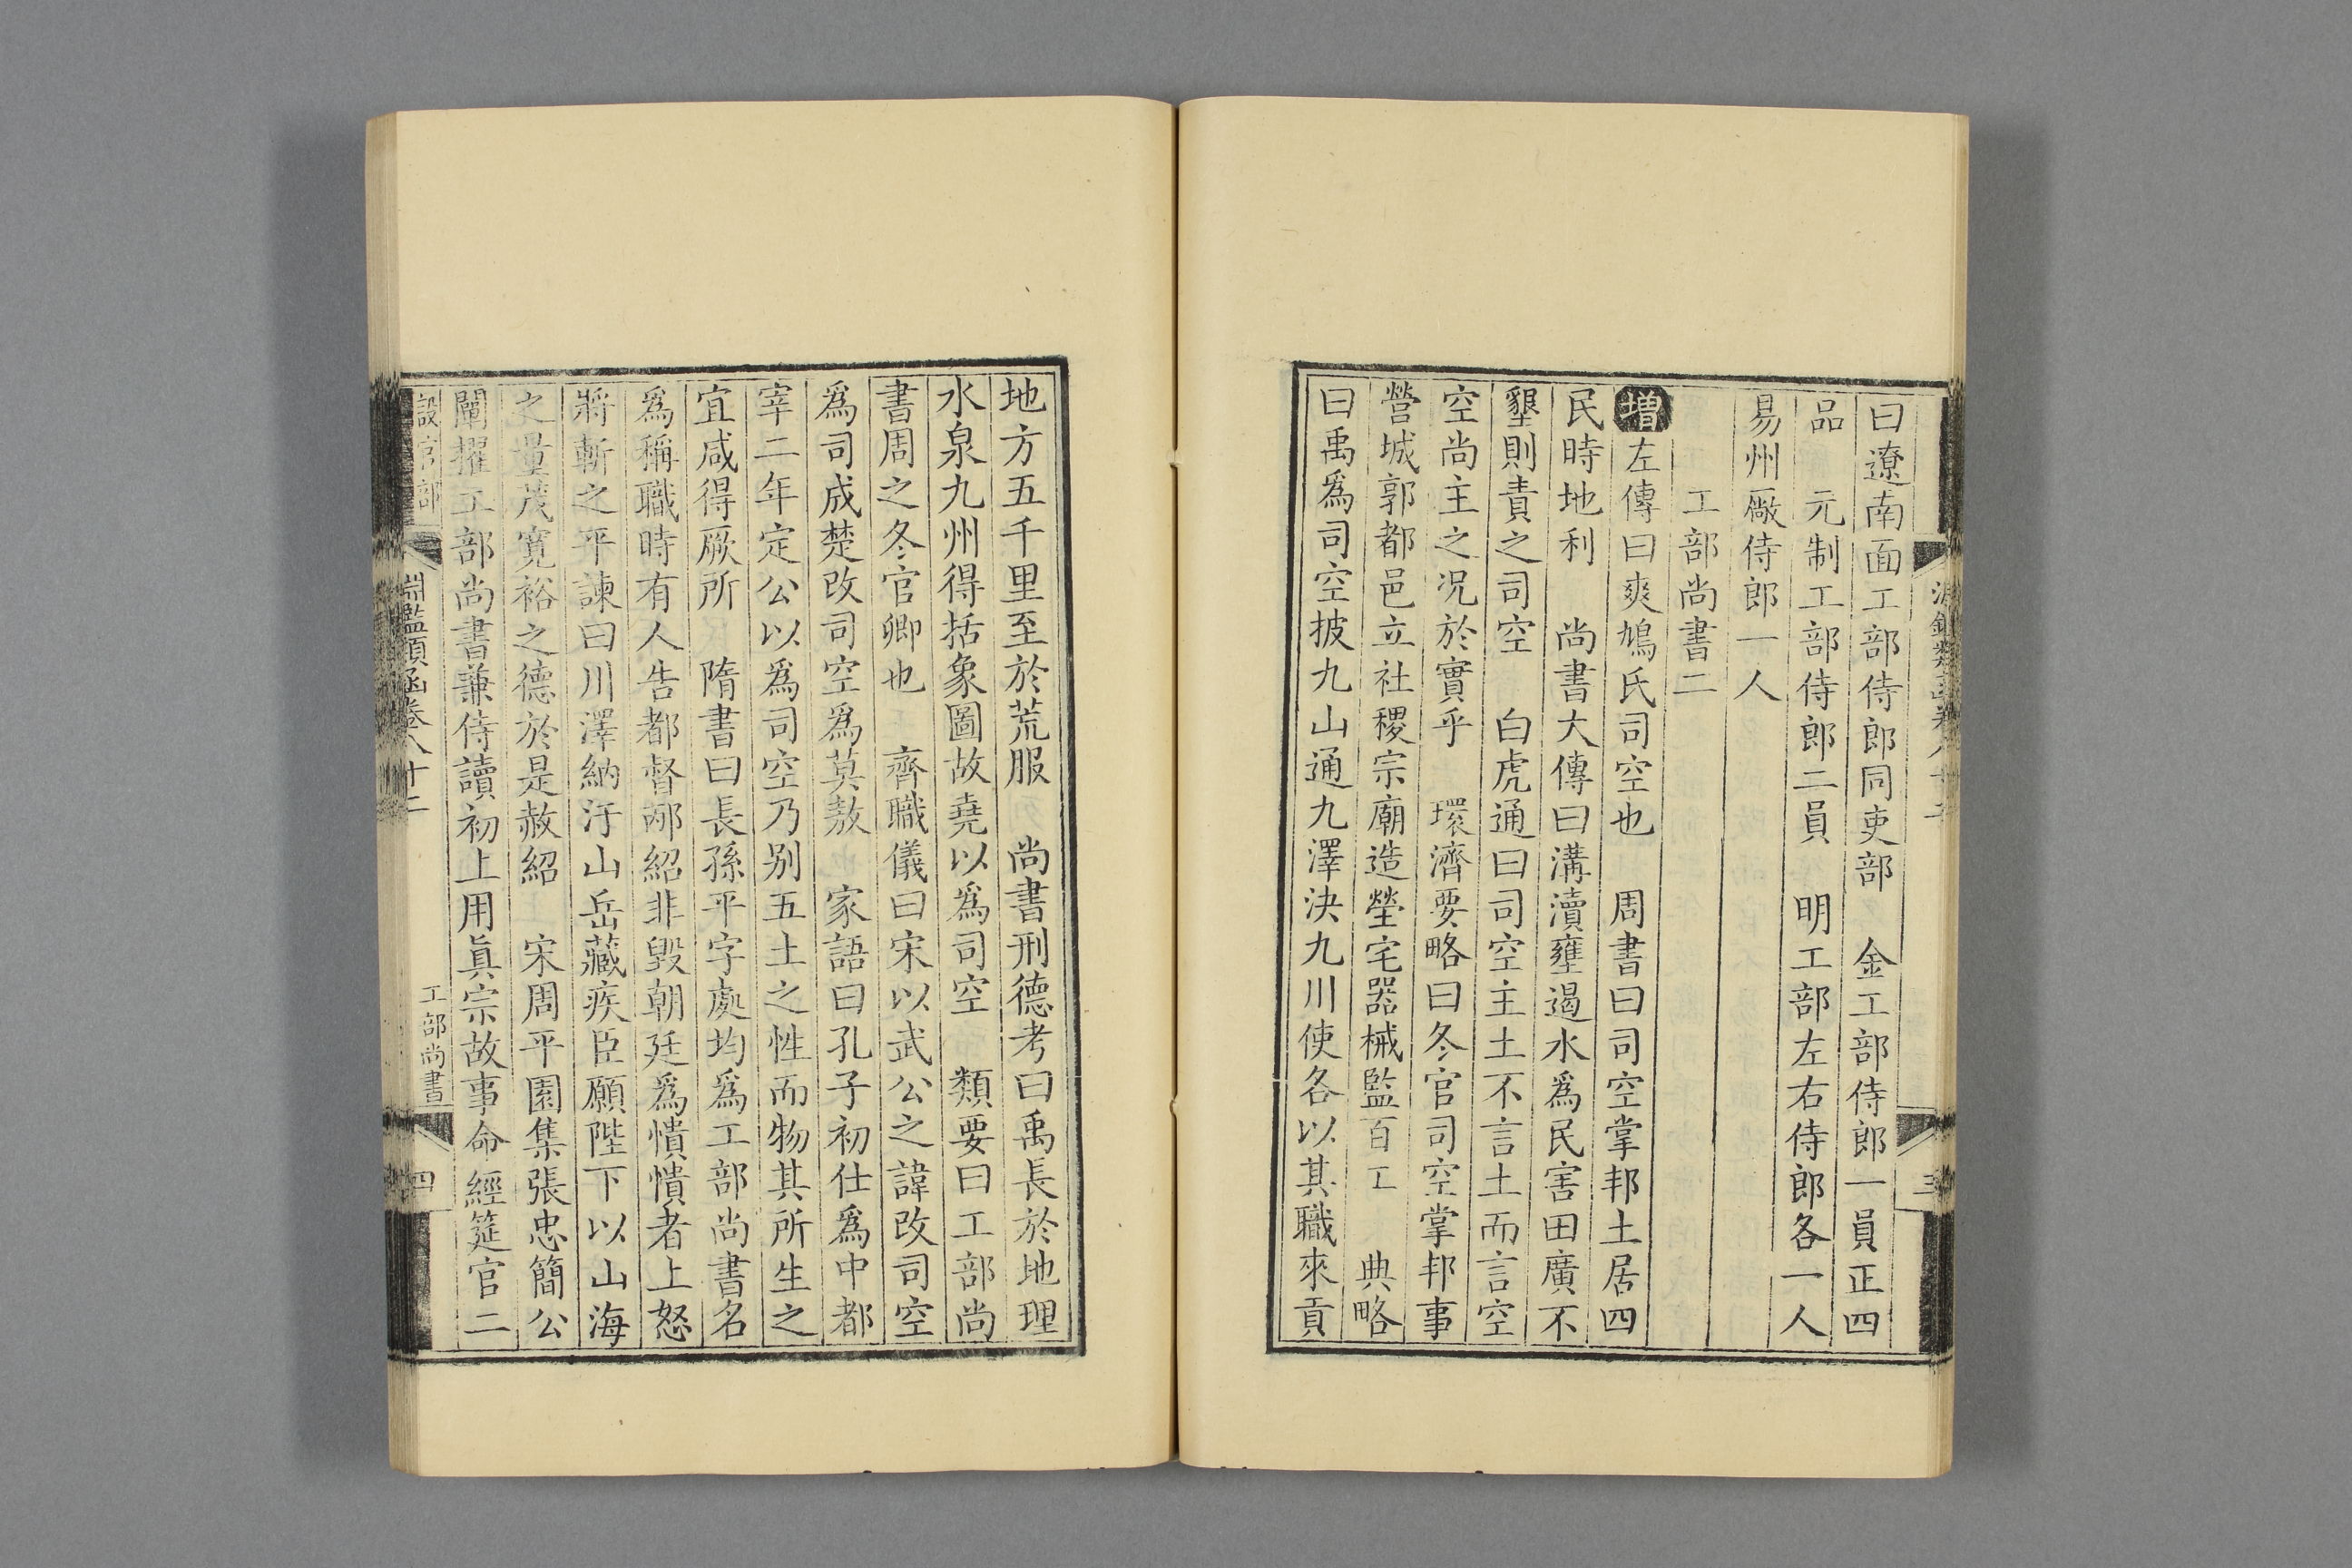 曰遼南面工部侍郎同吏部　金工部侍郎一員正四
品　元制工部侍郎二員　明工部左右侍郎各一人
易州廠侍郎一人
工部尚書二
增左傳曰爽鳩氏司空也　周書曰司空掌邦土居四
民時地利　尚書大傳曰溝瀆壅遏水爲民害田廣不
墾則責之司空　白虎通曰司空主土不言土而言空
空尚主之况於實乎　環濟要略曰冬官司空掌邦事
營城郭都邑立社稷宗廟造塋宅器械監百工　典略
曰禹爲司空披九山通九澤決九川使各以其職來貢
地方五千里至於荒服　尚書刑德考曰禹長於地理
水泉九州得括象圖故堯以爲司空　類要曰工部尚
書周之冬官卿也　齊職儀曰宋以武公之諱改司空
爲司成楚改司空爲莫敖　家語曰孔子初仕爲中都
宰二年定公以爲司空乃别五土之性而物其所生之
宜咸得厥所　隋書曰長孫平字處均爲工部尚書名
爲稱職時有人告都督邴紹非毀朝廷爲憒憒者上怒
將斬之平諫曰川澤納汙山岳藏疾臣願陛下以山海
之量茂寬裕之德於是赦紹　宋周平園集張忠簡公
闡擢工部尚書兼侍讀初上用眞宗故事命經筵官二
設官部　淵鑑類函卷八十二　工部尚書　四